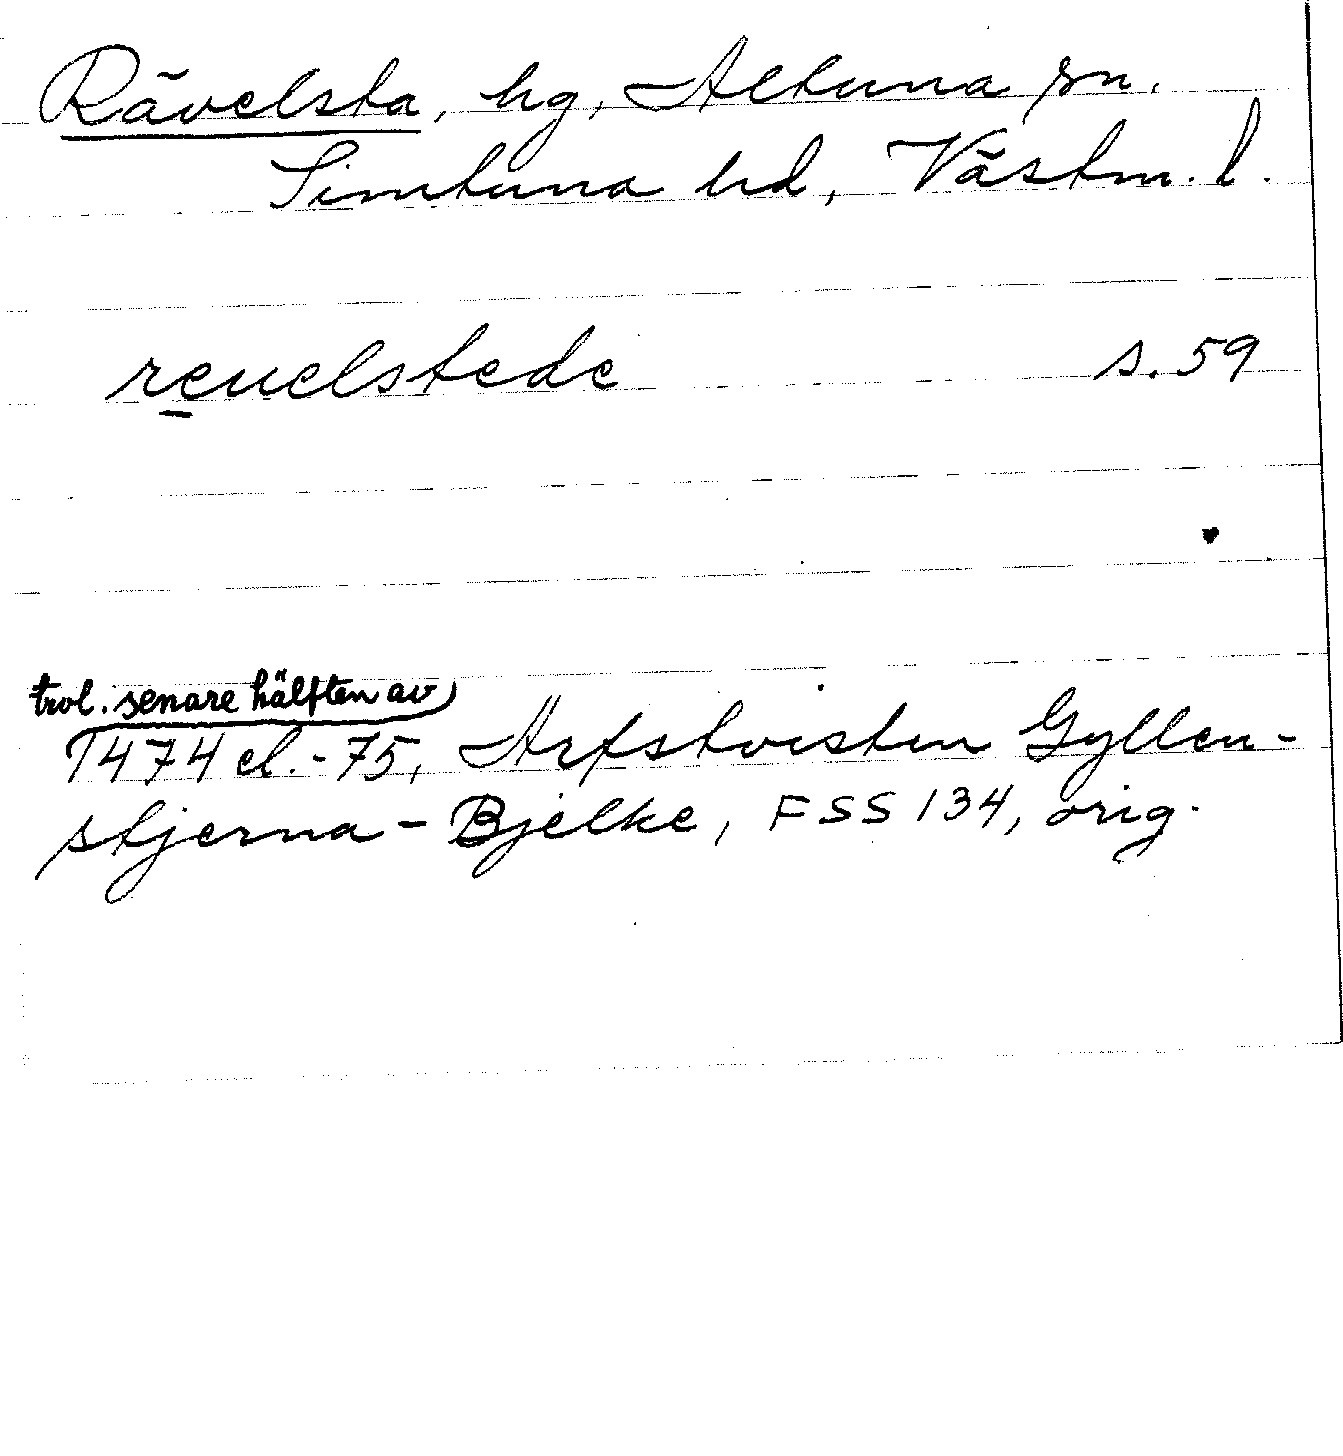 Rävelsta, hg, Altuna sn.
Simtuna hd, Västm. l.
reuelstede s. 59
trol. senare hälften av
1474 el. -75, Arfstvisten Gyllen-
stjerna - Bjelke, FSS 134, orig.